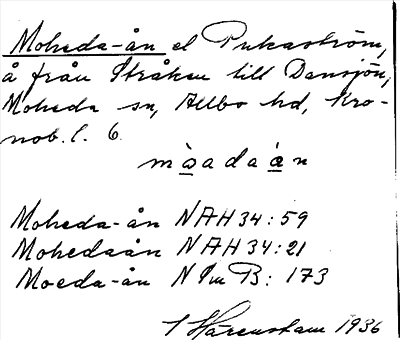 Moheda-ån el Pukaström,
å från Stråken till Dansjön,
Moheda sn, Allbo hd, Kro-
nob. l. 6
mὰsadaὰn
Moheda-ån NAH 34:59
Mohedaån NAH 34:21
Moeda-ån N Sm B: 173
Härenstam 1936